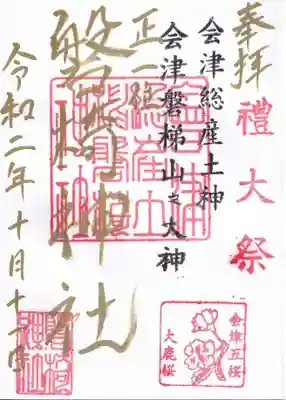 奉拝
禮大祭
会津総産土神
会津磐梯山之大神
正一位
磐椅神社
令和二年十月十一日
会津五桜
大鹿桜